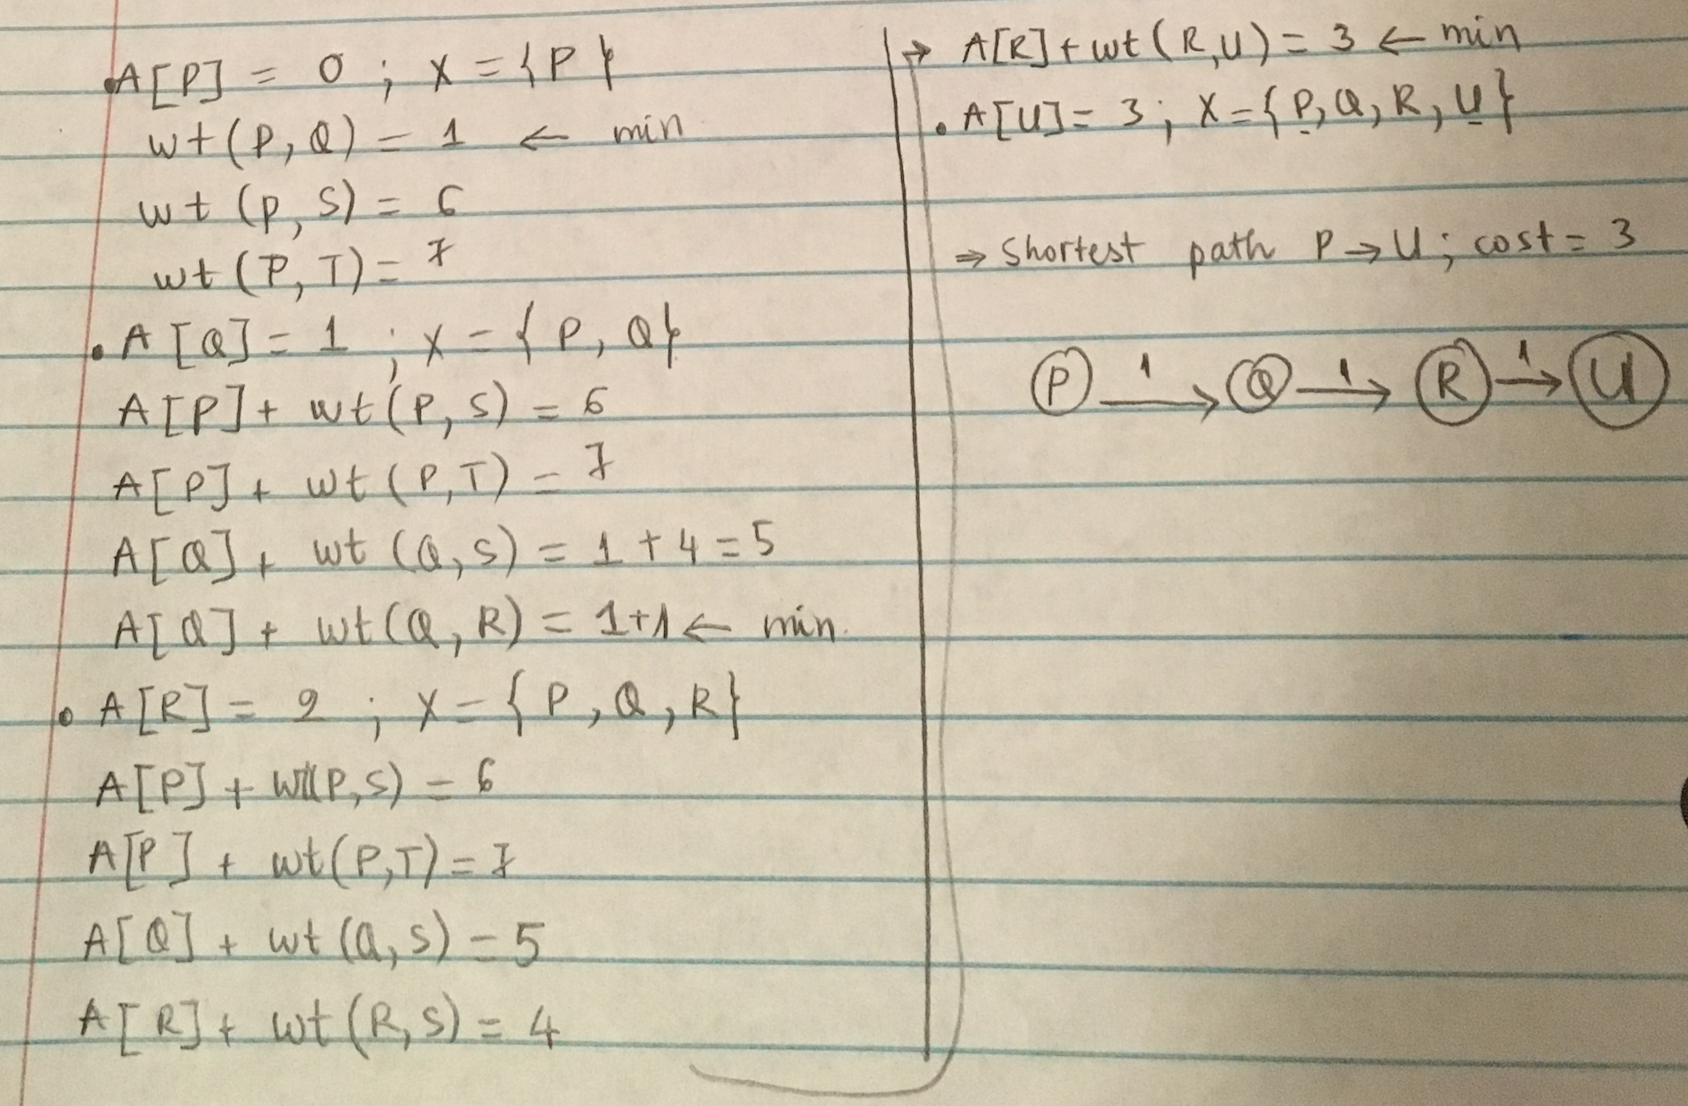 • A[P] = 0 ; X = {P}
wt(P, Q) = 1 ← min
wt(P, S) = 6
wt(P, T) = 7
• A[Q] = 1 ; X = {P, Q}
A[P] + wt(P, S) = 6
A[P] + wt(P, T) = 7
A[Q] + wt(Q, S) = 1 + 4 = 5
A[Q] + wt(Q, R) = 1+1 ← min.
• A[R] = 2 ; X = {P, Q, R}
A[P] + wt(P, S) = 6
A[P] + wt(P, T) = 7
A[Q] + wt(Q, S) = 5
A[R] + wt(R, S) = 4
→ A[R] + wt(R, U) = 3 ← min
• A[U] = 3 ; X = {P, Q, R, U}
⇒ Shortest path P → U ; cost = 3
P 1→ Q 1→ R 1→ U